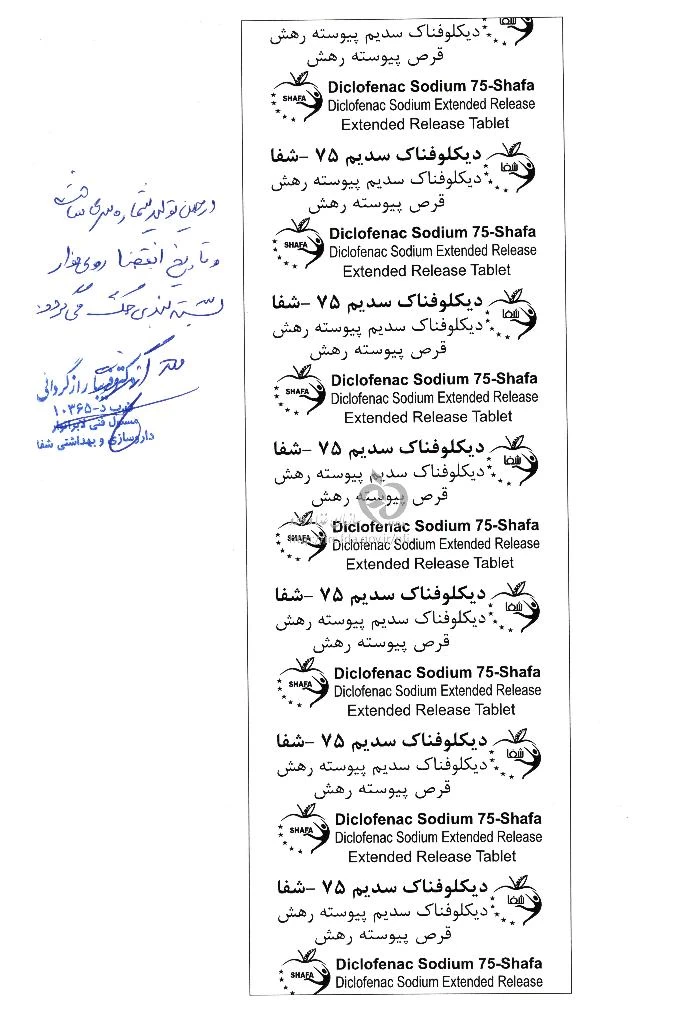 دیکلوفناک سدیم پیوسته رهش
قرص پیوسته رهش
SHAFA
Diclofenac Sodium 75-Shafa
Diclofenac Sodium Extended Release
Extended Release Tablet
دیکلوفناک سدیم ۷۵ –شفا
شفا
دیکلوفناک سدیم پیوسته رهش
قرص پیوسته رهش
SHAFA
Diclofenac Sodium 75-Shafa
Diclofenac Sodium Extended Release
Extended Release Tablet
دیکلوفناک سدیم ۷۵ –شفا
شفا
دیکلوفناک سدیم پیوسته رهش
قرص پیوسته رهش
SHAFA
Diclofenac Sodium 75-Shafa
Diclofenac Sodium Extended Release
Extended Release Tablet
دیکلوفناک سدیم ۷۵ –شفا
شفا
دیکلوفناک سدیم پیوسته رهش
قرص پیوسته رهش
SHAFA
Diclofenac Sodium 75-Shafa
Diclofenac Sodium Extended Release
Extended Release Tablet
دیکلوفناک سدیم ۷۵ –شفا
شفا
دیکلوفناک سدیم پیوسته رهش
قرص پیوسته رهش
SHAFA
Diclofenac Sodium 75-Shafa
Diclofenac Sodium Extended Release
Extended Release Tablet
دیکلوفناک سدیم ۷۵ –شفا
شفا
دیکلوفناک سدیم پیوسته رهش
قرص پیوسته رهش
SHAFA
Diclofenac Sodium 75-Shafa
Diclofenac Sodium Extended Release
Extended Release Tablet
دیکلوفناک سدیم ۷۵ –شفا
شفا
دیکلوفناک سدیم پیوسته رهش
قرص پیوسته رهش
SHAFA
Diclofenac Sodium 75-Shafa
Diclofenac Sodium Extended Release
در حین تولید شماره سری ساخت
و تاریخ انقضا روی نوار
بسته بندی حک می گردد
رازگردانی
د-۱۰۳۶۵
مسئول فنی لابراتوار
داروسازی و بهداشتی شفا